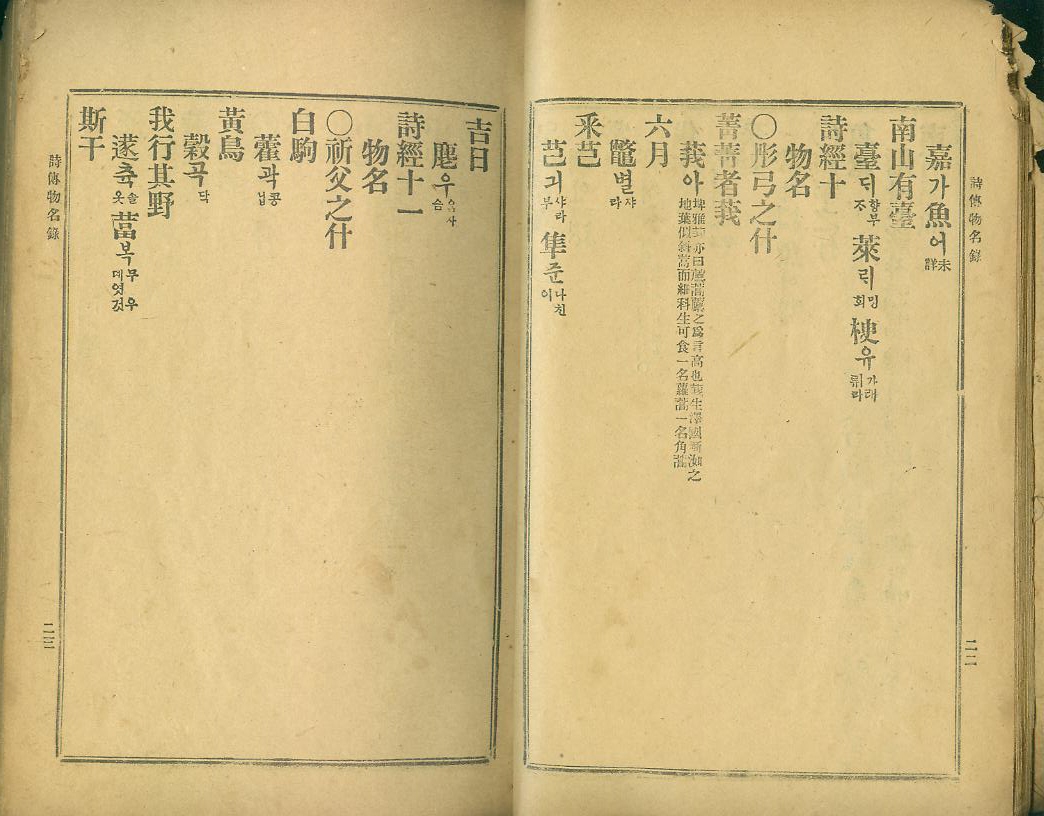 詩傳物名錄
嘉가魚어未詳
南山有臺
臺ᄃᆡ향부조 萊ᄅᆡ밍회 楰유가래류라
詩經十
物名
〇彤弓之什
菁菁者莪
莪아埤雅莪亦曰蘿蒿蘿之爲言高也莪生澤國漸洳之地葉似斜蒿而細科生可食一名蘿蒿一名角蒿
六月
鼈별쟈라
采芑
芑긔샤라부 隼쥰나친이
二二
吉日
麀우암사슴
詩經十一
物名
〇祈父之什
白駒
藿곽콩닙
黃鳥
穀곡닥
我行其野
蓫츅솔옷 葍복무우데엿것
斯干
詩傳物名錄
二三